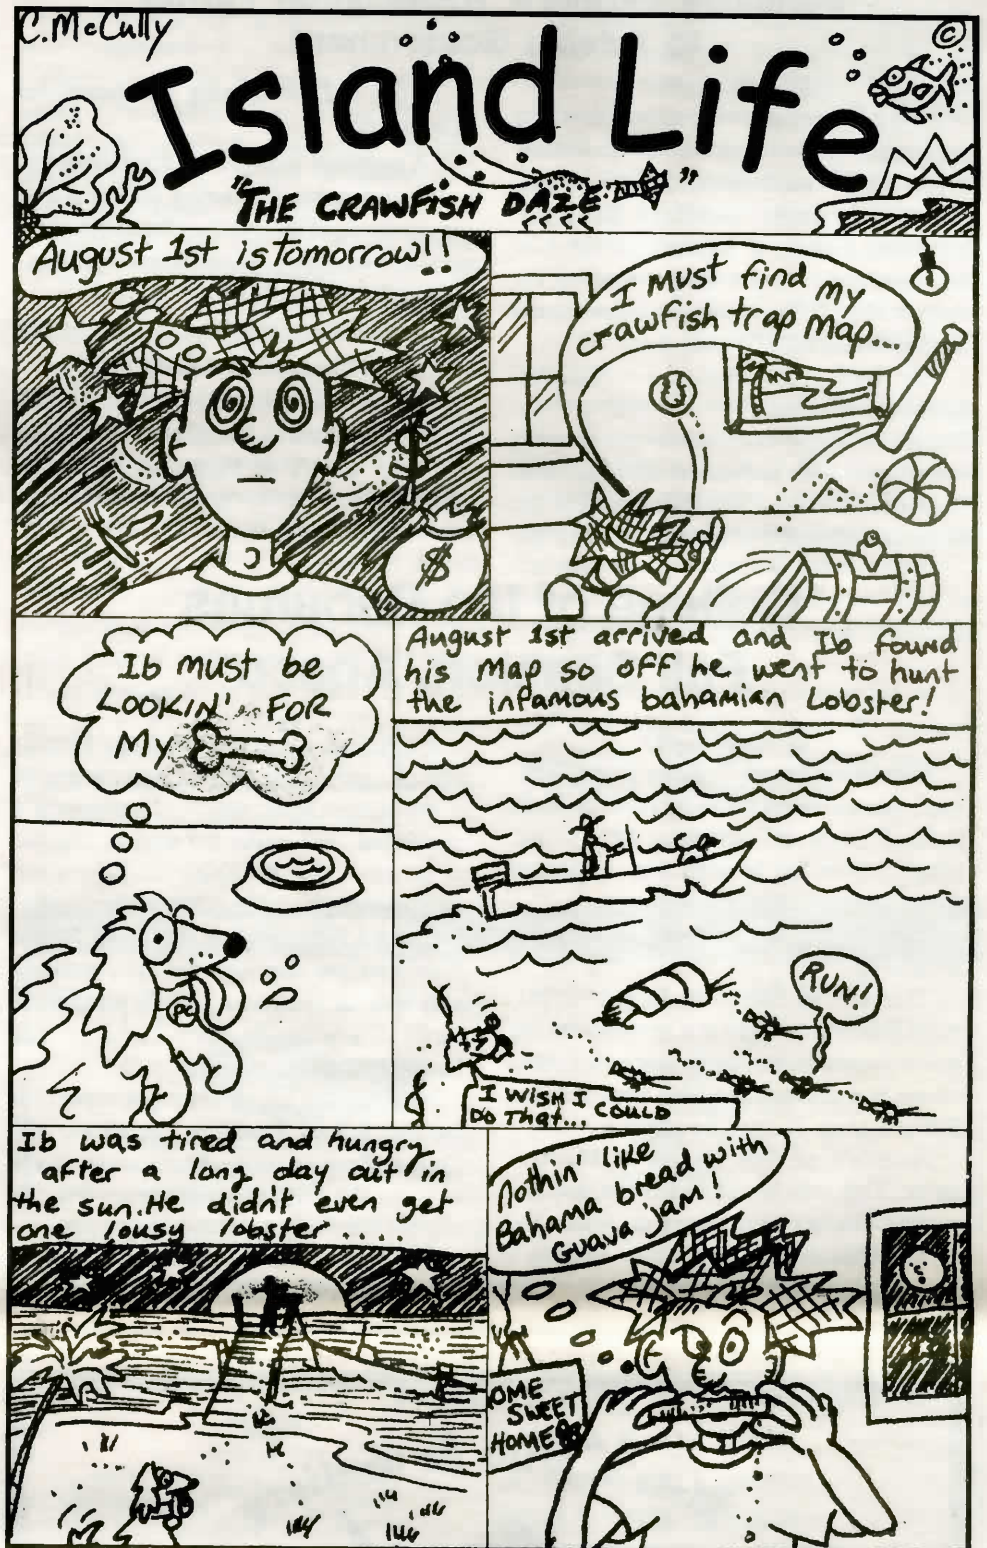 C. McCully
©
Island Life
"THE CRAWFISH DAZE"
August 1st is tomorrow!!
$
$
I Must find my
crawfish trap Map...
Ib must be
LOOKIN' FOR
My
PC
August 1st arrived and Ib found
his Map so off he went to hunt
the infamous bahamian Lobster!
RUN!
I WISH I COULD
DO That...
Ib was tired and hungry
after a long day out in
the sun. He didn't even get
one lousy lobster ....
Nothin' like
Bahama bread with
Guava jam!
OME
SWEET
HOME